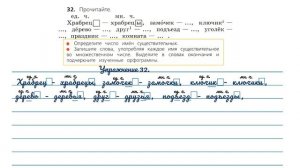 32. Прочитайте.
ед. ч. мн. ч.
Храбрец – храбрецы, замочек – ..., ключик –
..., дерево – ..., друг – ..., подъезд – ..., уголёк
..., праздник – ..., комната – ... .
• Определите число имён существительных.
• Запишите слова, употребляя каждое имя существительное
в множественном числе. Выделите в словах окончания и
подчеркните изученные орфограммы.
Упражнение 32.
Храбрец – храбрецы, замочек – замочки, ключик – ключики,
дерево – деревья, друг – друзья, подъезд – подъезды,